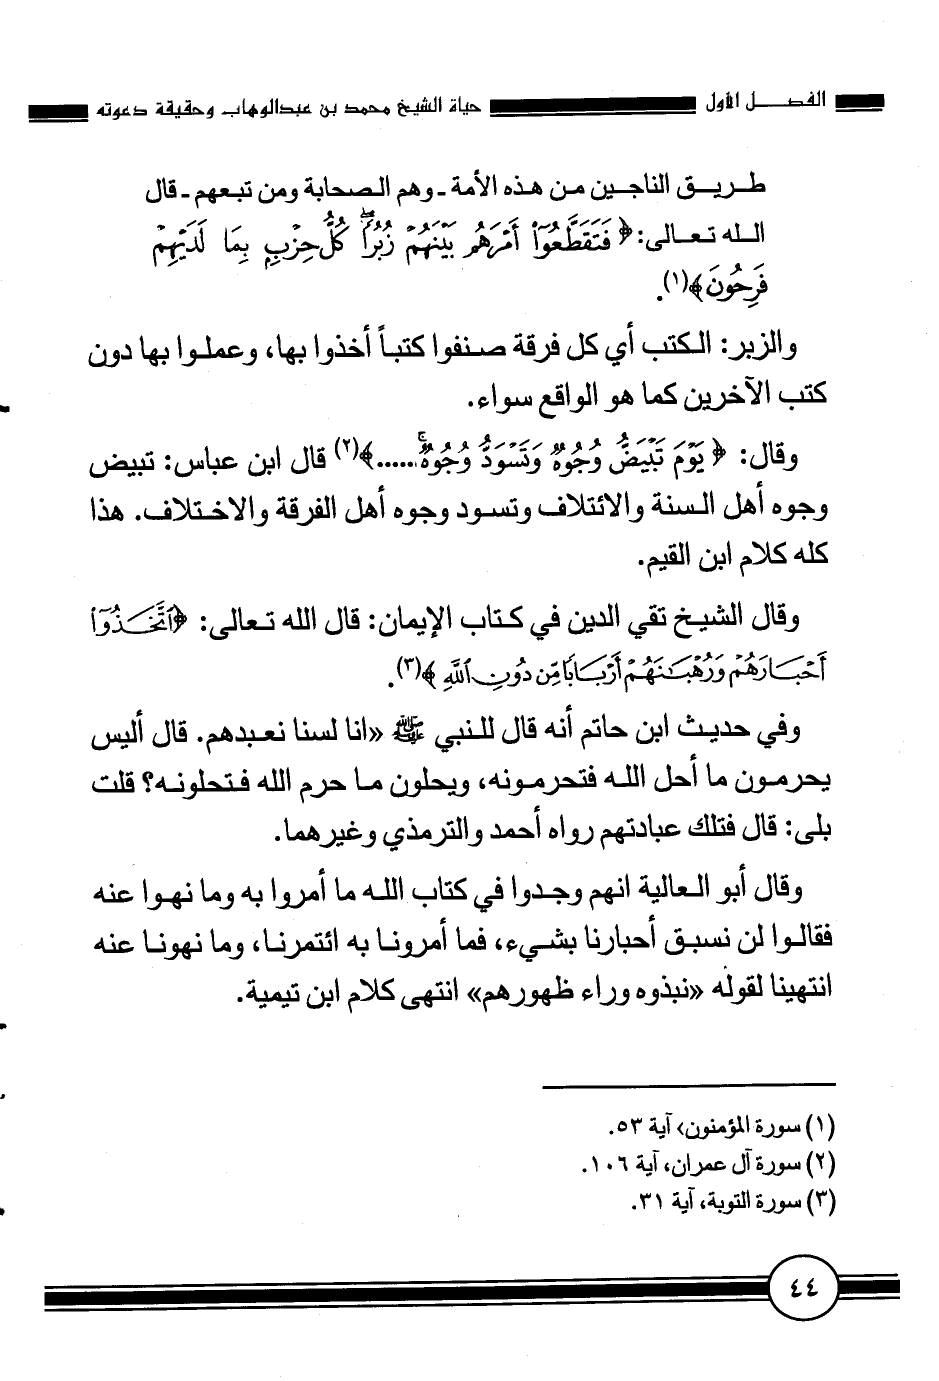 الفصل الأول حياة الشيخ محمد بن عبدالوهاب وحقيقة دعوته
طريق الناجين من هذه الأمة ـ وهم الصحابة ومن تبعهم ـ قال
الله تعالى: ﴿فَتَقَطَّعُوٓاْ أَمْرَهُم بَيْنَهُمْ زُبُرًاۖ كُلُّ حِزْبِۭ بِمَا لَدَيْهِمْ
فَرِحُونَ﴾(١).
والزبر: الكتب أي كل فرقة صنفوا كتباً أخذوا بها، وعملوا بها دون
كتب الآخرين كما هو الواقع سواء.
وقال: ﴿يَوْمَ تَبْيَضُّ وُجُوهٌ وَتَسْوَدُّ وُجُوهٌۚ......﴾(٢) قال ابن عباس: تبيض
وجوه أهل السنة والائتلاف وتسود وجوه أهل الفرقة والاختلاف. هذا
كله كلام ابن القيم.
وقال الشيخ تقي الدين في كتاب الإيمان: قال الله تعالى: ﴿ٱتَّخَذُوٓاْ
أَحْبَارَهُمْ وَرُهْبَٰنَهُمْ أَرْبَابًا مِّن دُونِ ٱللَّهِ﴾(٣).
وفي حديث ابن حاتم أنه قال للنبي ﷺ «انا لسنا نعبدهم. قال أليس
يحرمون ما أحل الله فتحرمونه، ويحلون ما حرم الله فتحلونه؟ قلت
بلى: قال فتلك عبادتهم رواه أحمد والترمذي وغيرهما.
وقال أبو العالية انهم وجدوا في كتاب الله ما أمروا به وما نهوا عنه
فقالوا لن نسبق أحبارنا بشيء، فما أمرونا به ائتمرنا، وما نهونا عنه
انتهينا لقوله «نبذوه وراء ظهورهم» انتهى كلام ابن تيمية.
(١) سورة المؤمنون، آية ٥٣.
(٢) سورة آل عمران، آية ١٠٦.
(٣) سورة التوبة، آية ٣١.
٤٤